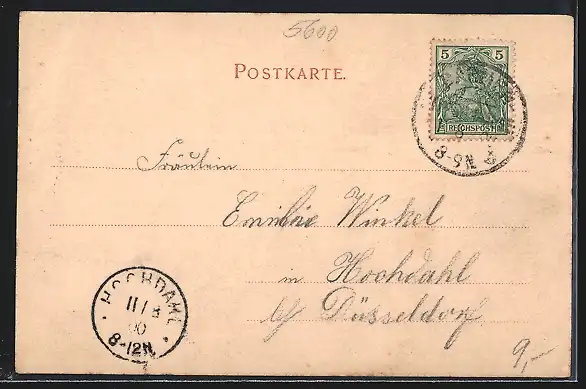 5600
POSTKARTE.
5 5
REICHSPOST
8-9N
Fräulein
Emilie Winkel
in Hochdahl
b/ Düsseldorf
HOCHDAHL
11/8
00
8-12N
9,-